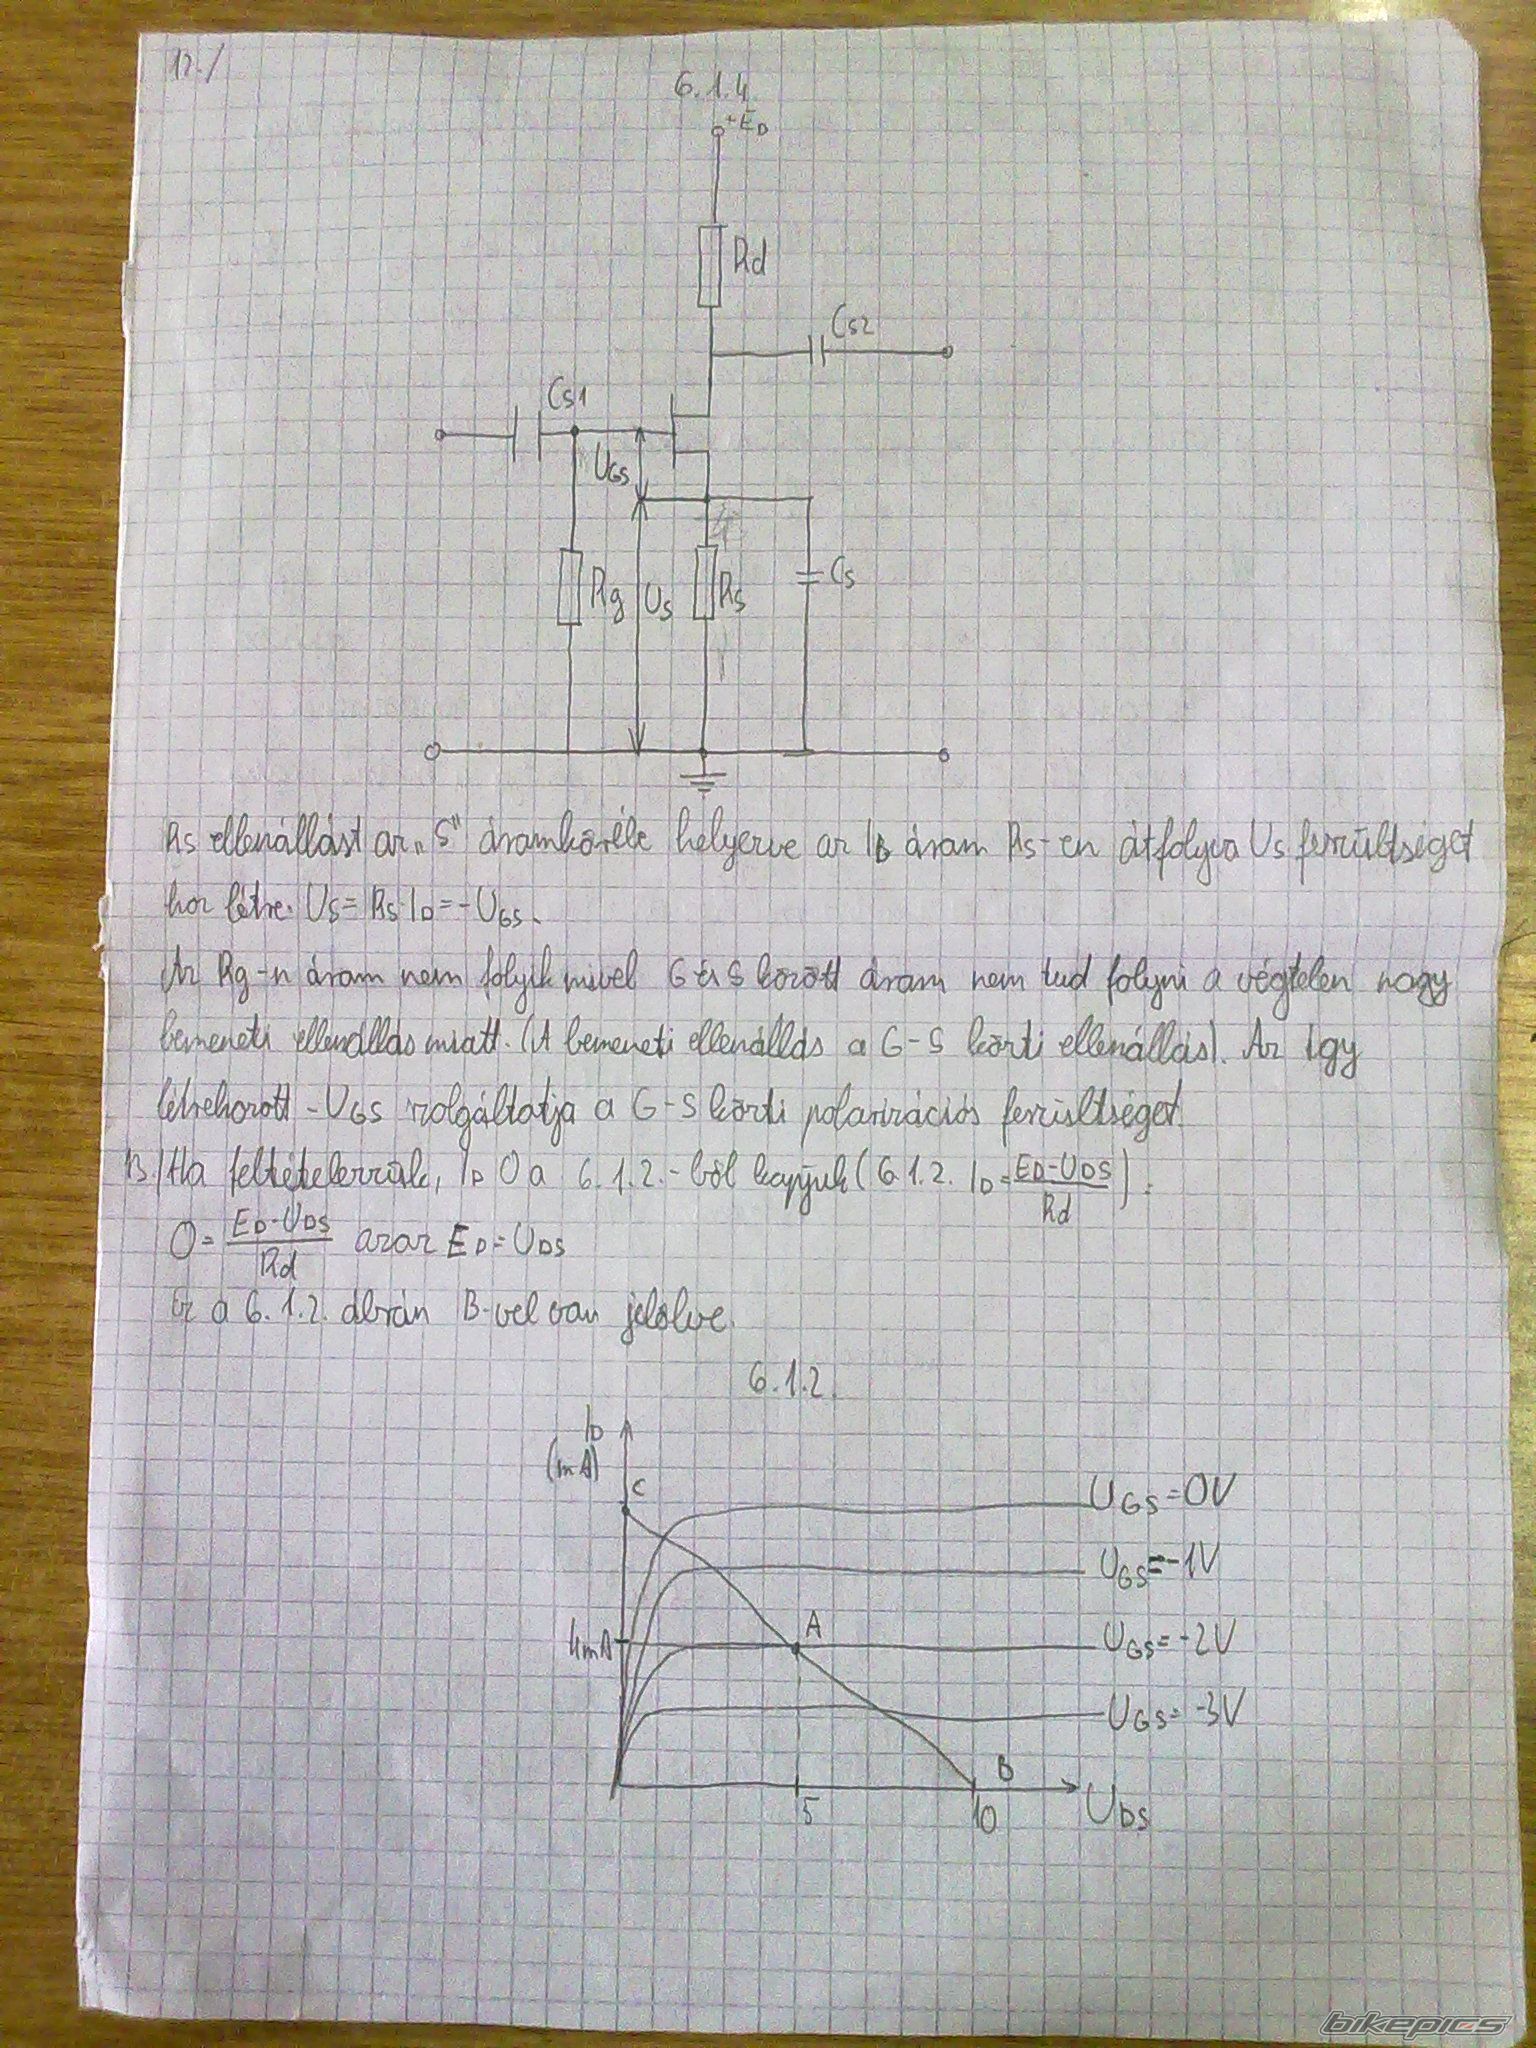 12./
6.1.4
+ED
Rd
Cs2
Cs1
UGS
Rg
Us
Rs
Cs
Rs ellenállást az „S" áramkörébe helyezve az ID áram Rs-en átfolyva Us feszültséget
hoz létre. Us = Rs·ID = -UGS.
Az Rg-n áram nem folyik mivel G és S között áram nem tud folyni a végtelen nagy
bemeneti ellenállás miatt. (A bemeneti ellenállás a G-S közti ellenállás). Az így
létrehozott -UGS szolgáltatja a G-S közti polarizációs feszültséget.
13./ Ha feltételezzük, ID 0 a 6.1.2.-ből kapjuk (6.1.2. ID = ED-UDS/Rd):
0 = ED-UDS/Rd azaz ED = UDS
Ez a 6.1.2. ábrán B-vel van jelölve.
6.1.2.
ID
(mA)
C
UGS=0V
UGS=-1V
A
4mA
UGS=-2V
UGS=-3V
B
5
10
UDS
bikepics